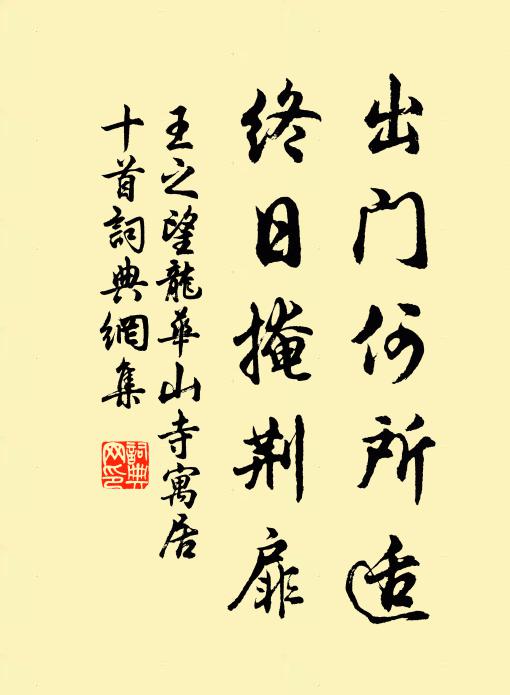 出门何所适
终日掩荆扉
王之望龍华山寺寓居
十首詞典網集
詞典
网印